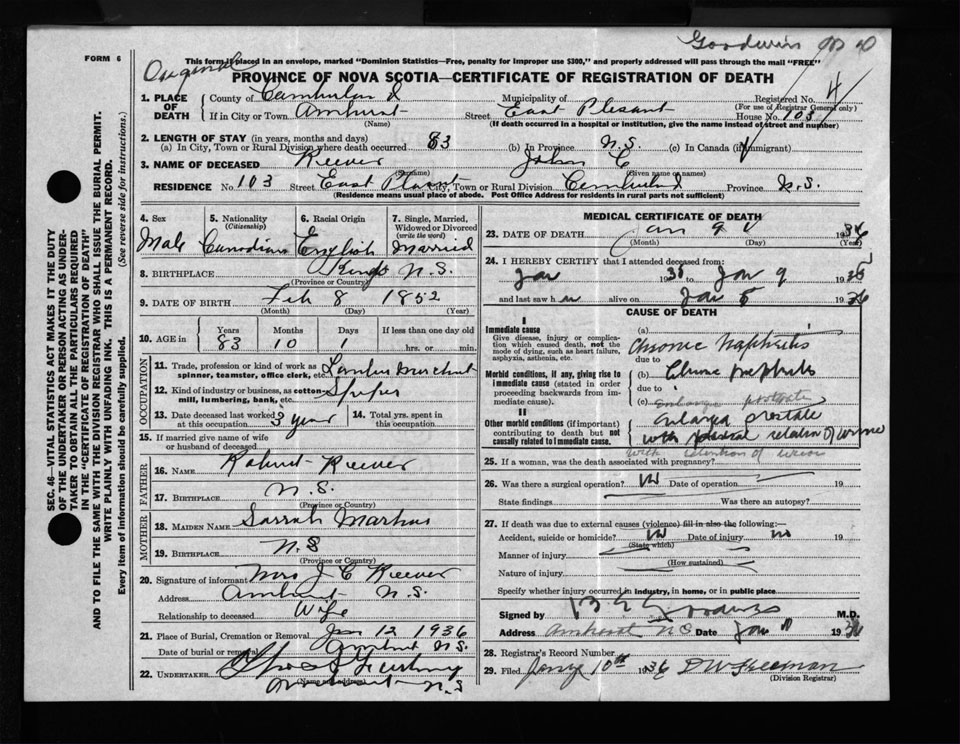 Goodwin
FORM 6
Original
This form if placed in an envelope, marked "Dominion Statistics—Free, penalty for improper use $300," and properly addressed will pass through the mail "FREE"
PROVINCE OF NOVA SCOTIA—CERTIFICATE OF REGISTRATION OF DEATH
1. PLACE OF DEATH County of Cumberland Municipality of Registered No. 4
(For use of Registrar General only)
If in City or Town Amherst Street East Plesant House No. 103
(Name) (If death occurred in a hospital or institution, give the name instead of street and number)
2. LENGTH OF STAY (in years, months and days)
(a) In City, Town or Rural Division where death occurred 83 (b) In Province N.S. (c) In Canada (if immigrant)
3. NAME OF DECEASED Reever John C
(Surname) (Given name or names)
RESIDENCE No. 103 Street East Plesant City, Town or Rural Division Cumberland Province N.S.
(Residence means usual place of abode. Post Office Address for residents in rural parts not sufficient)
4. Sex 5. Nationality (Citizenship) 6. Racial Origin 7. Single, Married, Widowed or Divorced (write the word)
Male Canadian English Married
8. BIRTHPLACE Kings N.S.
(Province or Country)
9. DATE OF BIRTH Feb 8 1852
(Month) (Day) (Year)
10. AGE in Years Months Days If less than one day old
83 10 1 hrs. or min.
OCCUPATION
11. Trade, profession or kind of work as spinner, teamster, office clerk, etc.
12. Kind of industry or business, as cotton-mill, lumbering, bank, etc.
13. Date deceased last worked at this occupation 3 year 14. Total yrs. spent in this occupation
15. If married give name of wife or husband of deceased
FATHER
16. Name Robert Reever
17. Birthplace N.S.
(Province or Country)
MOTHER
18. Maiden Name Sarrah
19. Birthplace N.S
(Province or Country)
20. Signature of informant Mrs J C Reever
Address Amherst N.S.
Relationship to deceased Wife
21. Place of Burial, Cremation or Removal Jan 12 1936
Date of burial or removal Amherst N.S.
22. UNDERTAKER
Amherst N.S
MEDICAL CERTIFICATE OF DEATH
23. DATE OF DEATH Jan 9 1936
(Month) (Day) (Year)
24. I HEREBY CERTIFY that I attended deceased from:
Jan 1935 to Jan 9 193
and last saw h alive on Jan 1936
CAUSE OF DEATH
I
Immediate cause
Give disease, injury or complication which caused death, not the mode of dying, such as heart failure, asphyxia, asthenia, etc.
(a) Chronic Nephritis
due to
Morbid conditions, if any, giving rise to immediate cause (stated in order proceeding backwards from immediate cause).
(b) Chronic nephritis
due to
(c) Enlarge prostate
II
Other morbid conditions (if important) contributing to death but not causally related to immediate cause.
enlarge prostate
with retention of urine
with retention of urine
25. If a woman, was the death associated with pregnancy?
26. Was there a surgical operation? Date of operation 19
State findings Was there an autopsy?
27. If death was due to external causes (violence) fill in also the following:—
Accident, suicide or homicide? Date of injury no 19
(State which)
Manner of injury
(How sustained)
Nature of injury
Specify whether injury occurred in industry, in home, or in public place
Signed by Goodwin M.D.
Address Amherst N.S Date Jan 1936
28. Registrar's Record Number
29. Filed Jany 10th 1936 Freeman
(Division Registrar)
SEC. 46—VITAL STATISTICS ACT MAKES IT THE DUTY
OF THE UNDERTAKER OR PERSON ACTING AS UNDER-
TAKER TO OBTAIN ALL THE PARTICULARS REQUIRED
IN THE "CERTIFICATE OF REGISTRATION OF DEATH"
AND TO FILE THE SAME WITH THE DIVISION REGISTRAR WHO SHALL ISSUE THE BURIAL PERMIT.
WRITE PLAINLY WITH UNFADING INK. THIS IS A PERMANENT RECORD.
Every item of information should be carefully supplied. (See reverse side for instructions.)